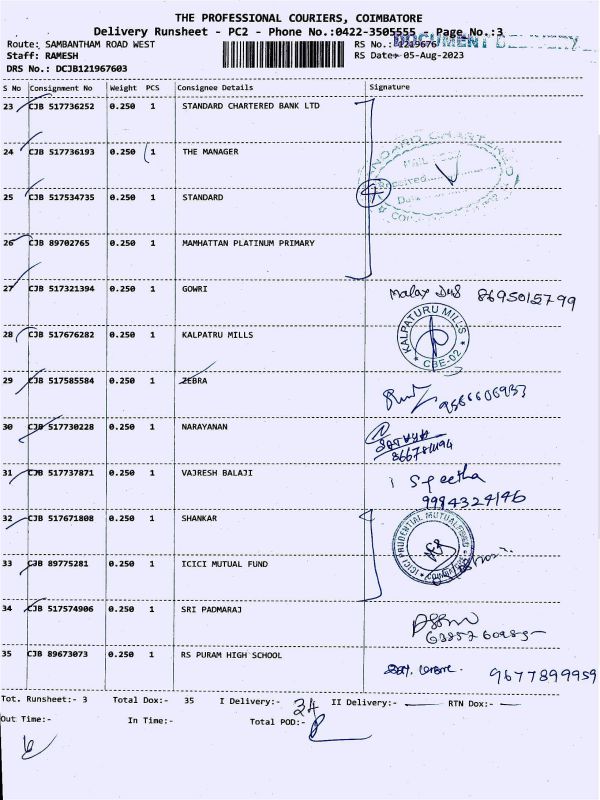 THE PROFESSIONAL COURIERS, COIMBATORE
Delivery Runsheet - PC2 - Phone No.:0422-3505555 - Page No.:3
DOCUMENT DELIVERY
Route: SAMBANTHAM ROAD WEST RS No.: 1219676
Staff: RAMESH RS Date: 05-Aug-2023
DRS No.: DCJB121967603
S No Consignment No Weight PCS Consignee Details Signature
23 CJB 517736252 0.250 1 STANDARD CHARTERED BANK LTD
24 CJB 517736193 0.250 1 THE MANAGER
25 CJB 517534735 0.250 1 STANDARD
4
26 CJB 89702765 0.250 1 MAMHATTAN PLATINUM PRIMARY
27 CJB 517321394 0.250 1 GOWRI
8695015799
28 CJB 517676282 0.250 1 KALPATRU MILLS
KALPATURU MILLS
CBE-02
29 CJB 517585584 0.250 1 ZEBRA
9566606937
30 CJB 517730228 0.250 1 NARAYANAN
31 CJB 517737871 0.250 1 VAJRESH BALAJI
9994324146
32 CJB 517671808 0.250 1 SHANKAR
ICICI PRUDENTIAL MUTUAL FUND
33 CJB 89775281 0.250 1 ICICI MUTUAL FUND
34 CJB 517574906 0.250 1 SRI PADMARAJ
35 CJB 89673073 0.250 1 RS PURAM HIGH SCHOOL
9677899959
Tot. Runsheet:- 3 Total Dox:- 35 I Delivery:- 34 II Delivery:- RTN Dox:-
Out Time:- In Time:- Total POD:-